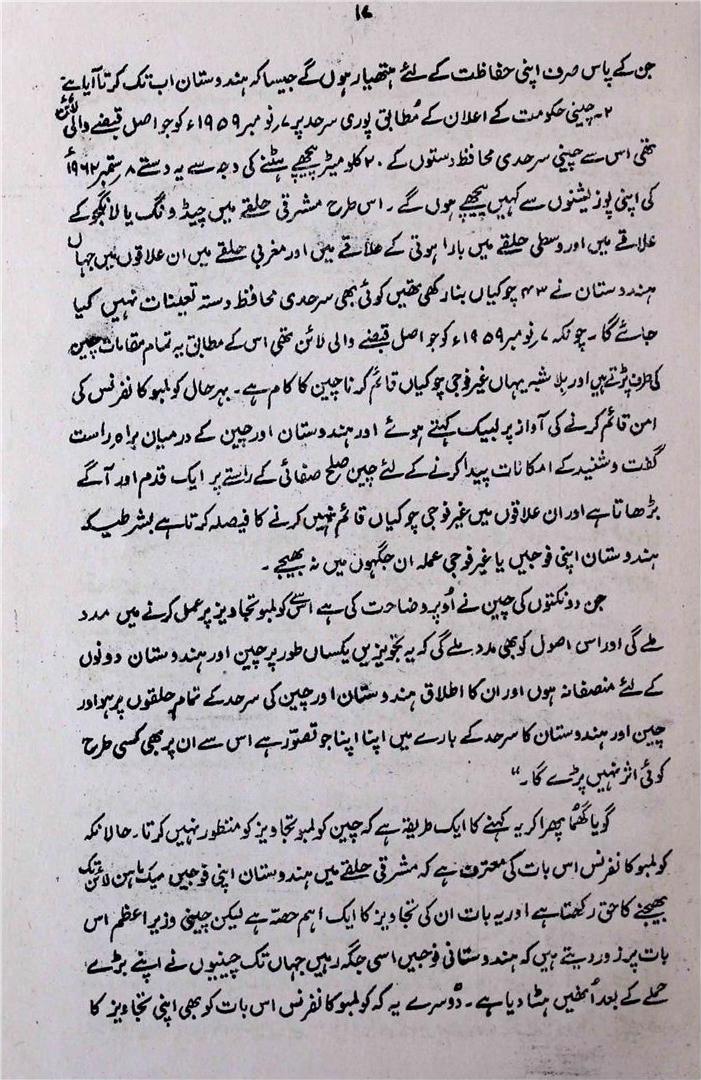 ۱۷
جن کے پاس صرف اپنی حفاظت کے لئے ہتھیار ہوں گے جیسا کہ ہندوستان اب تک کرتا آیا ہے
۲۔ چینی حکومت کے اعلان کے مطابق پوری سرحد پر ۷ نومبر ۱۹۵۹ء کو جو اصل قبضے والی لائن
تھی اس سے چینی سرحدی محافظ دستوں کے ۲۰ کلومیٹر پیچھے ہٹنے کی وجہ سے یہ دستے ۸ ستمبر ۱۹۶۲ء
کی اپنی پوزیشنوں سے کہیں پیچھے ہوں گے۔ اس طرح مشرقی حلقے میں چیڈونگ یا لانگجو کے
علاقے میں اور وسطی حلقے میں باراہوتی کے علاقے میں اور مغربی حلقے میں ان علاقوں میں جہاں
ہندوستان نے ۴۳ چوکیاں بنا رکھی تھیں کوئی بھی سرحدی محافظ دستہ تعینات نہیں کیا
جائے گا۔ چونکہ ۷ نومبر ۱۹۵۹ء کو جو اصل قبضے والی لائن تھی اس کے مطابق یہ تمام مقامات چین
کی طرف پڑتے ہیں اور بلا شبہ یہاں غیر فوجی چوکیاں قائم کرنا چین کا کام ہے۔ بہرحال کولمبو کانفرنس کی
امن قائم کرنے کی آواز پر لبیک کہتے ہوئے اور ہندوستان اور چین کے درمیان براہ راست
گفت و شنید کے امکانات پیدا کرنے کے لئے چین صلح صفائی کے راستے پر ایک قدم اور آگے
بڑھاتا ہے اور ان علاقوں میں غیر فوجی چوکیاں قائم نہیں کرنے کا فیصلہ کرتا ہے بشرطیکہ
ہندوستان اپنی فوجیں یا غیر فوجی عملہ ان جگہوں میں نہ بھیجے۔
جن دو نکتوں کی چین نے اُوپر وضاحت کی ہے اس سے کولمبو تجاویز پر عمل کرنے میں مدد
ملے گی اور اس اصول کو بھی مدد ملے گی کہ یہ تجویزیں یکساں طور پر چین اور ہندوستان دونوں
کے لئے منصفانہ ہوں اور ان کا اطلاق ہندوستان اور چین کی سرحد کے تمام حلقوں پر ہو اور
چین اور ہندوستان کا سرحد کے بارے میں اپنا اپنا جو تصوّر ہے اس سے ان پر بھی کسی طرح
کوئی اثر نہیں پڑے گا۔“
گویا گھُما پھرا کر یہ کہنے کا ایک طریقہ ہے کہ چین کولمبو تجاویز کو منظور نہیں کرتا۔ حالانکہ
کولمبو کانفرنس اس بات کی معترف ہے کہ مشرقی حلقے میں ہندوستان اپنی فوجیں میک ماہن لائن تک
بھیجنے کا حق رکھتا ہے اور یہ بات ان کی تجاویز کا ایک اہم حصّہ ہے لیکن چینی وزیر اعظم اس
بات پر زور دیتے ہیں کہ ہندوستانی فوجیں اسی جگہ رہیں جہاں تک چینیوں نے اپنے بڑے
حملے کے بعد اُنھیں ہٹا دیا ہے۔ دُوسرے یہ کہ کولمبو کانفرنس اس بات کو بھی اپنی تجاویز کا